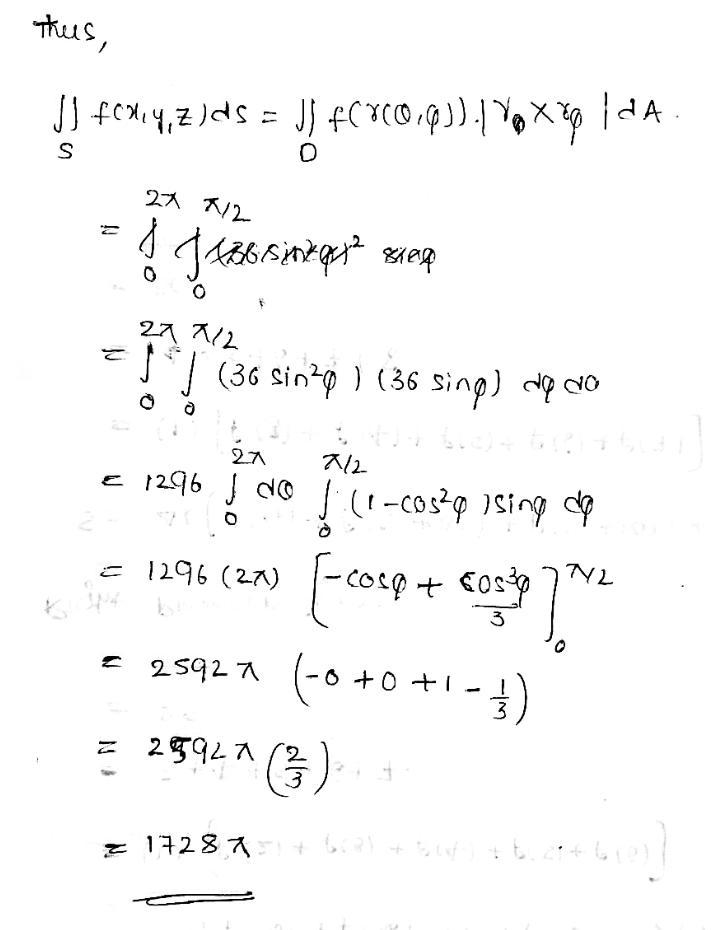 Thus,
∬_S f(x,y,z)dS = ∬_D f(r(θ,φ)).|r_θ × r_φ| dA.
= ∫_0^{2π} ∫_0^{π/2} (36 sin²φ)² sinφ
= ∫_0^{2π} ∫_0^{π/2} (36 sin²φ) (36 sinφ) dφ dθ
= 1296 ∫_0^{2π} dθ ∫_0^{π/2} (1-cos²φ) sinφ dφ
= 1296 (2π) [-cosφ + cos³φ/3]_0^{π/2}
= 2592 π (-0 + 0 + 1 - 1/3)
= 2592 π (2/3)
= 1728 π